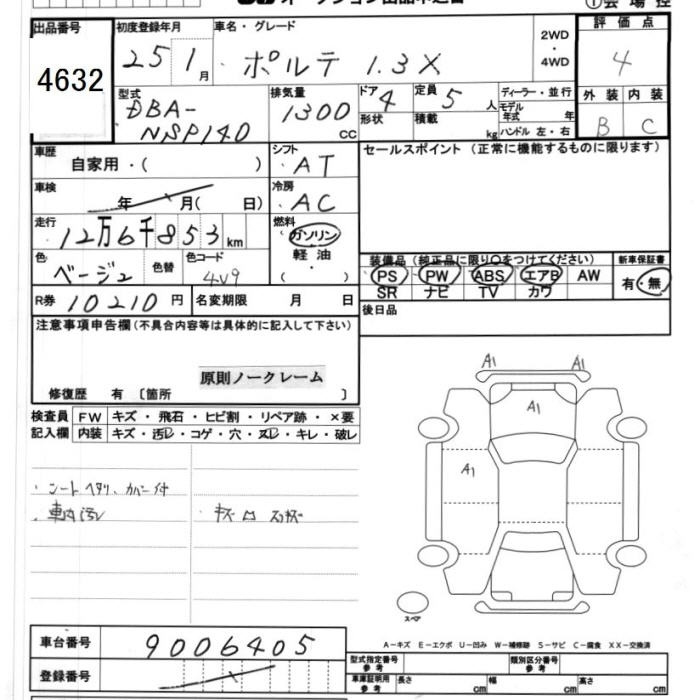 オークション出品申込書
①会場控
出品番号
4632
初度登録年月
25 1月
車名・グレード
ポルテ 1.3X
2WD
・
4WD
評価点
4
型式
DBA-
NSP140
排気量
1300
CC
ドア 4
形状
定員 5 人
積載 kg
ディーラー・並行
モデル年式 年
ハンドル 左・右
外装 内装
B C
車歴
自家用・( )
シフト
AT
セールスポイント (正常に機能するものに限ります)
車検
年 月( 日)
冷房
AC
走行
12万6千853km
燃料
(ガソリン
軽油
・
( )
色
ベージュ
色替
色コード
4V9
装備品 (純正品に限り○をつけてください)
PS PW ABS エアB AW
SR ナビ TV カワ
新車保証書
有・無
R券 10210円
名変期限 月 日
後日品
注意事項申告欄(不具合内容等は具体的に記入して下さい)
原則ノークレーム
修復歴 有 〔箇所 〕
検査員
記入欄
FW キズ・飛石・ヒビ割・リペア跡・×要
内装 キズ・汚レ・コゲ・穴・ヌレ・キレ・破レ
・シートヘタリ、カバー付
・車内汚レ
A1
A1
A1
A1
スペア
A−キズ E−エクボ U−凹み W−補修跡 S−サビ C−腐食 XX−交換済
車台番号
9006405
登録番号
型式指定番号
参考
類別区分番号
参考
車庫証明用
参考
長さ cm
幅 cm
高さ cm